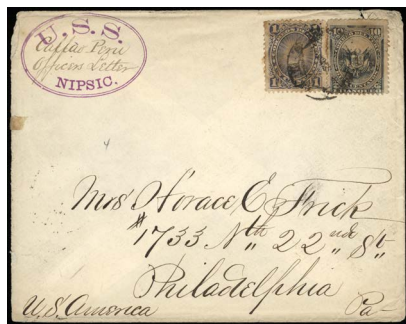 U.S.S.
Callao Peru
Officers Letter
NIPSIC.
1 1
Mrs Horace E. Frick
# 1733 Nth 22nd St
Philadelphia
U.S. America Pa